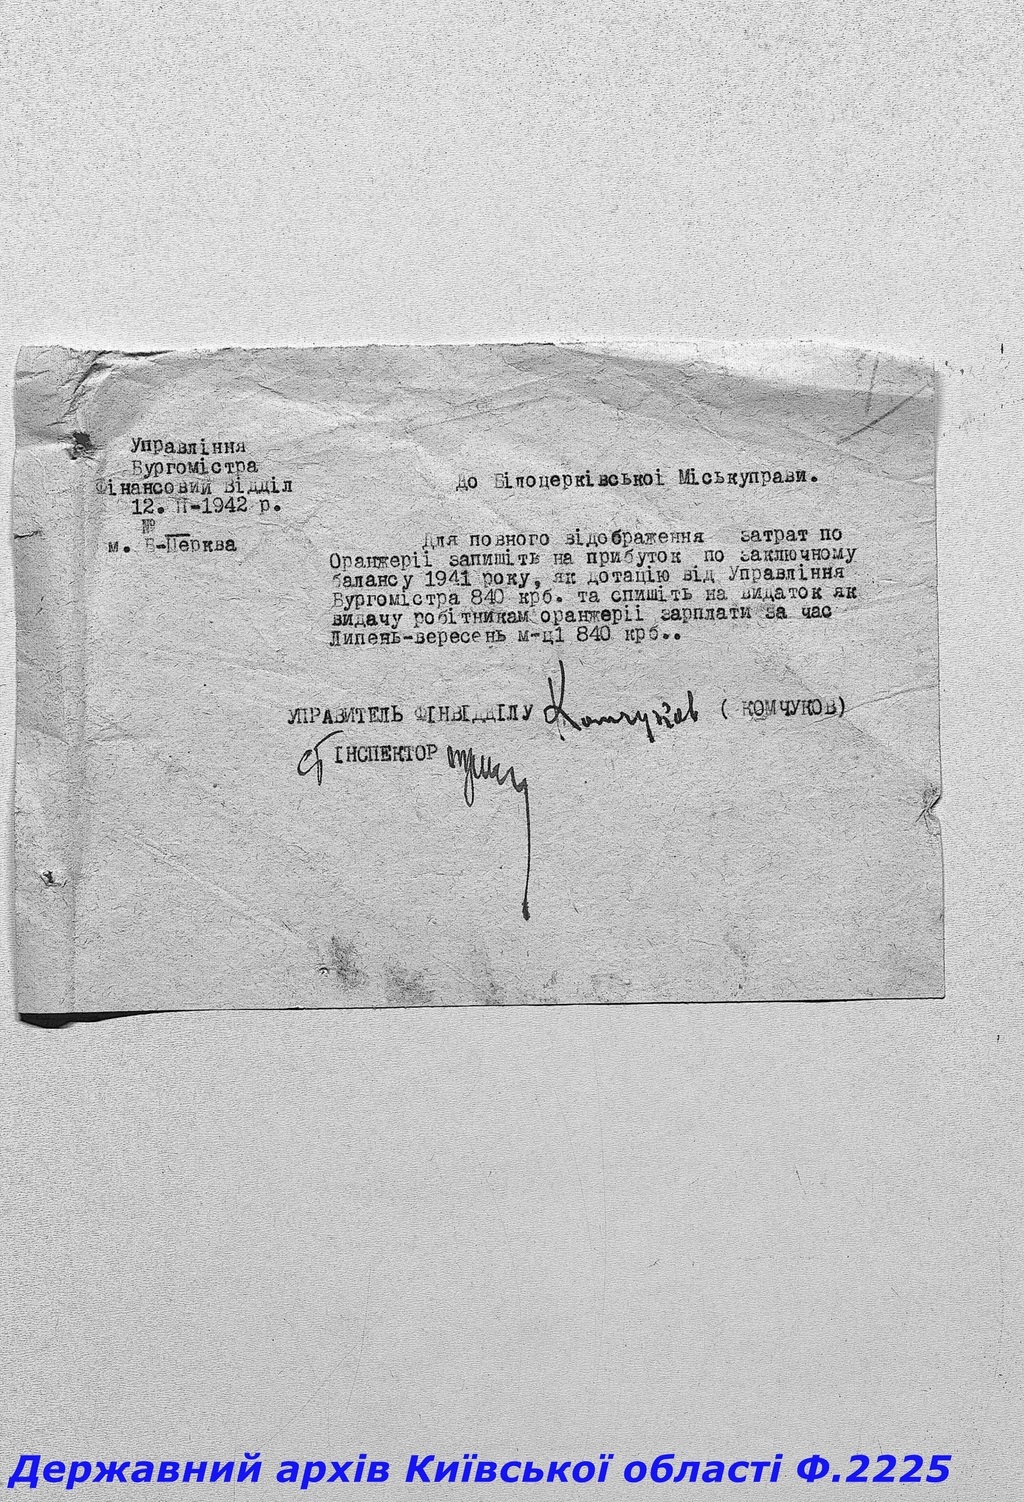 Управління
Бургомістра
Фінансовий Відділ
12. II-1942 р.
№
м. Б-Церква
До Білоцерківськоі Міськуправи.
Для повного відображення затрат по
Оранжеріі запишіть на прибуток по заключному
балансу 1941 року, як дотацію від Управління
Бургомістра 840 крб. та спишіть на видаток як
видачу робітникам оранжеріі зарплати за час
Липень-вересень м-ці 840 крб..
УПРАВИТЕЛЬ ФІНВІДДІЛУ Комчуков ( КОМЧУКОВ)
ст ІНСПЕКТОР
Державний архів Київської області Ф.2225